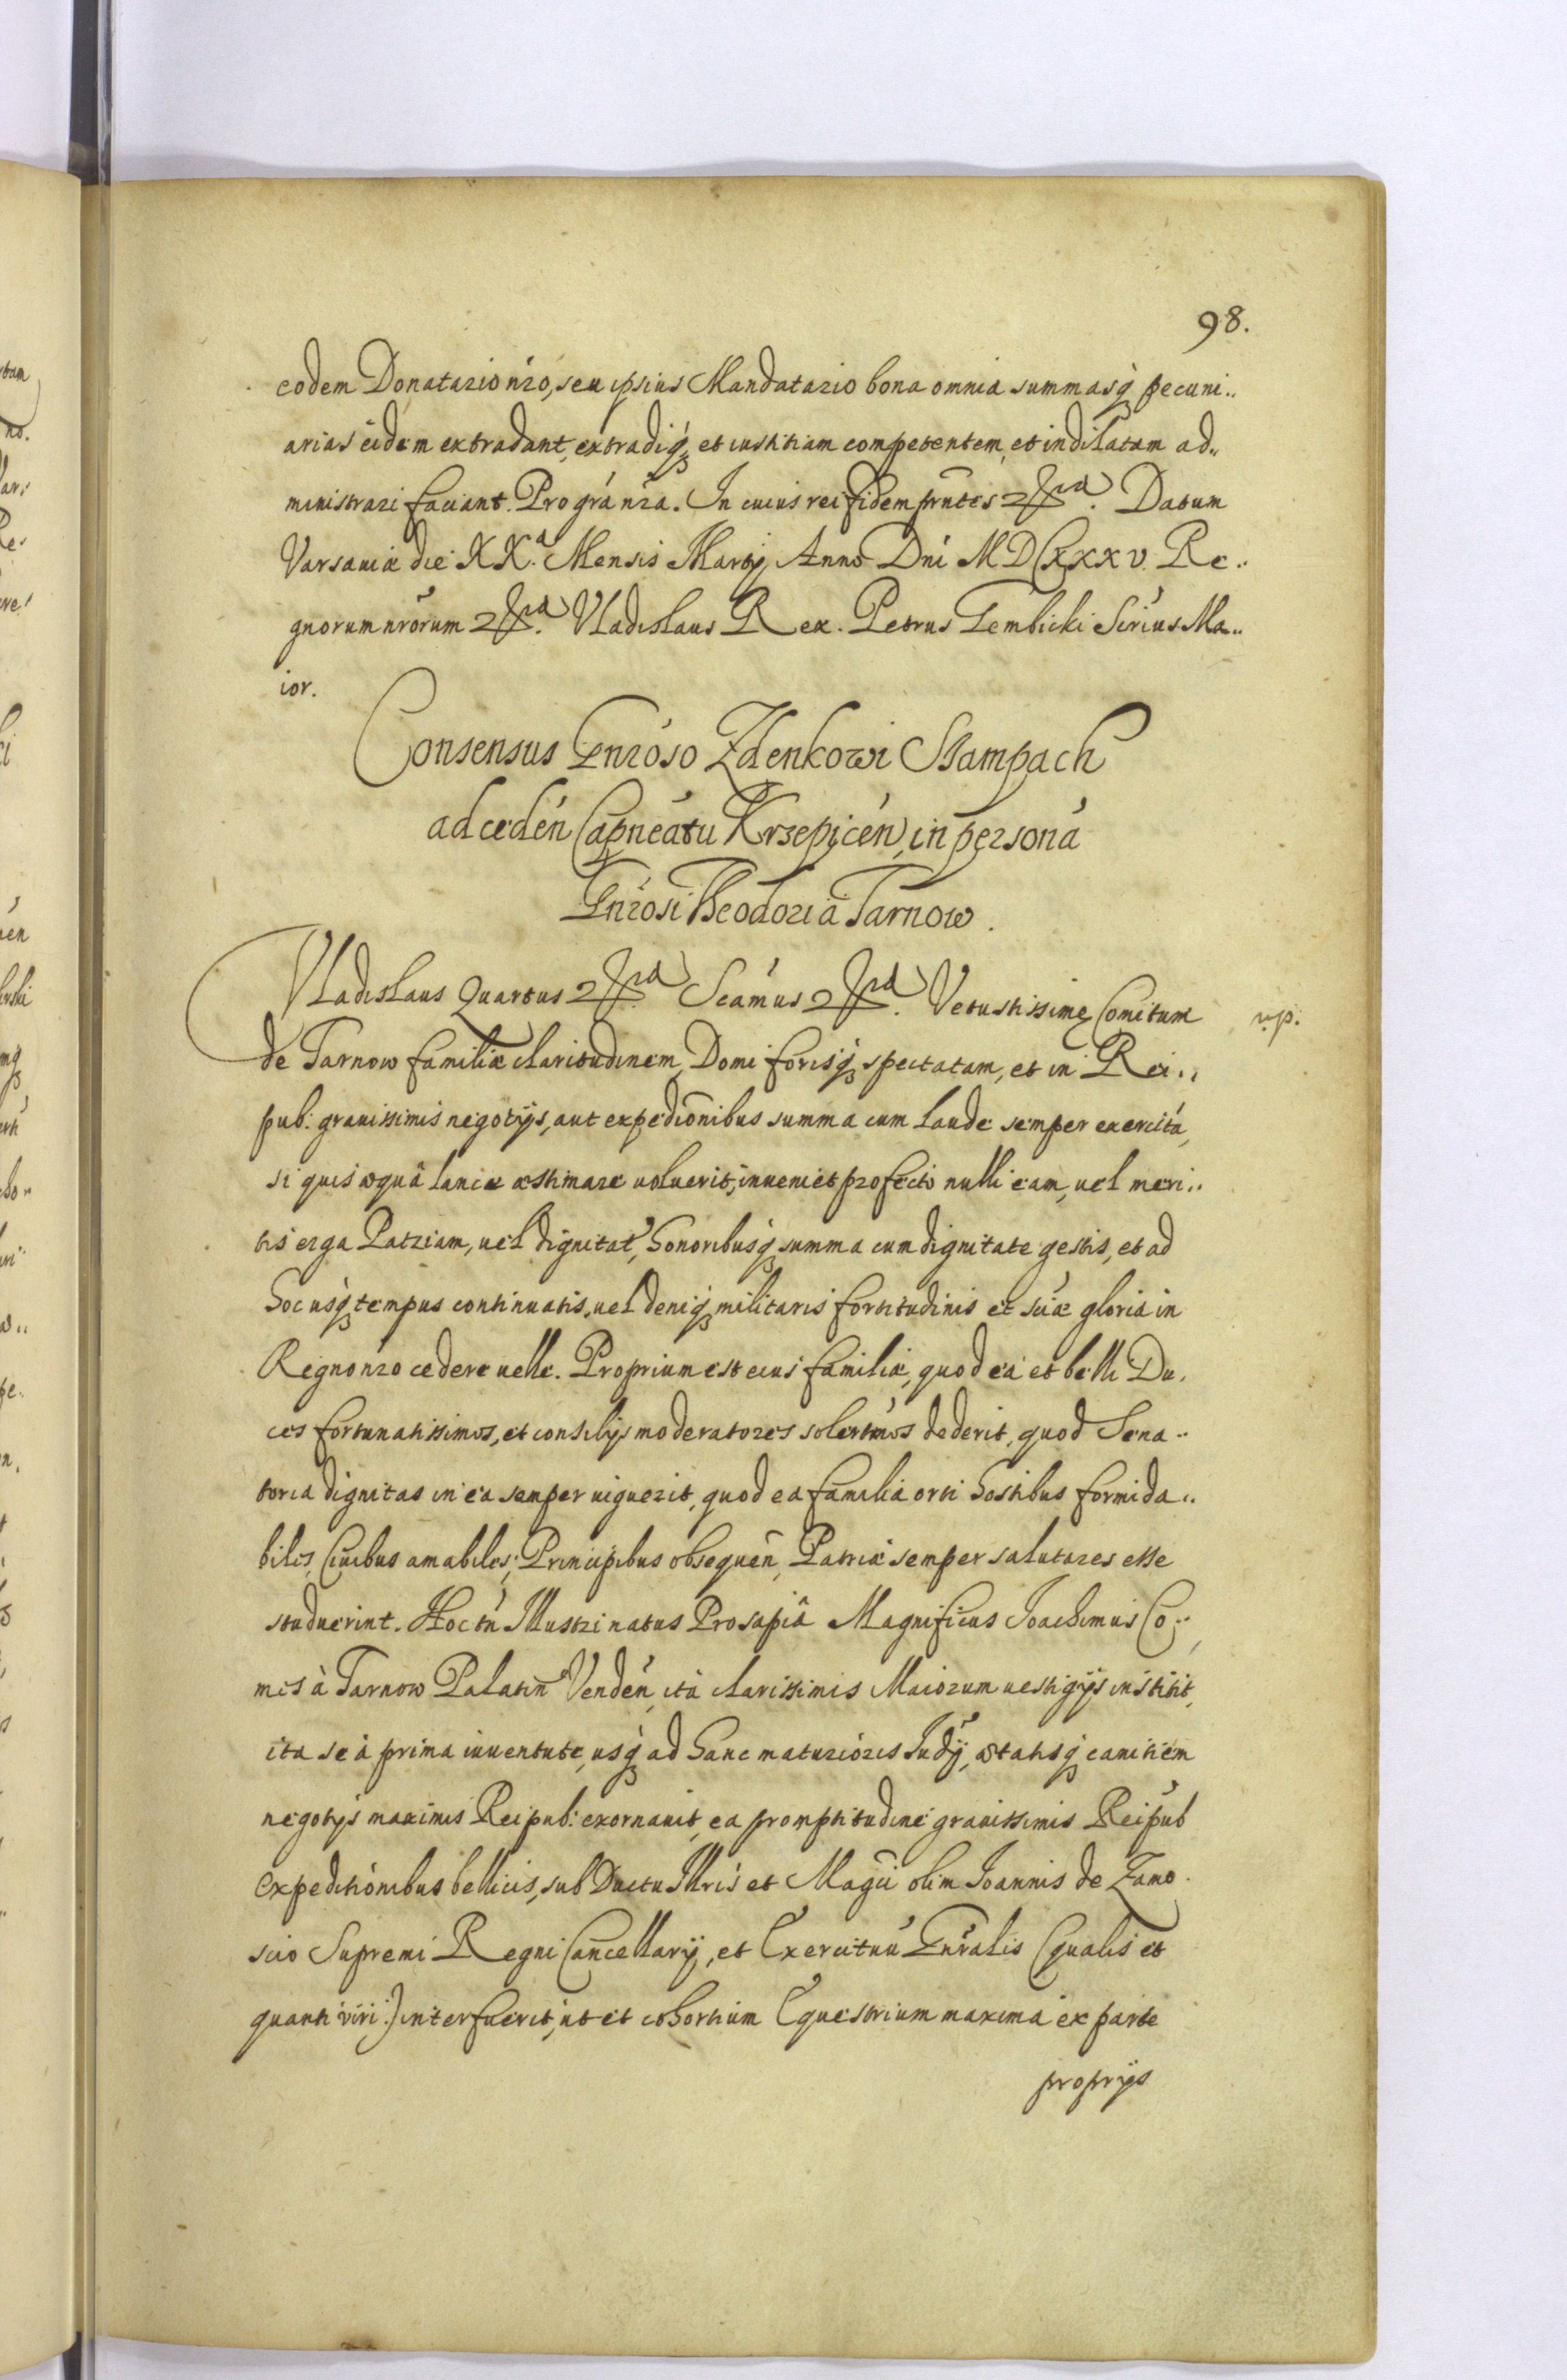 98.
eodem Donatario nro, seu ipsius Mandatario bona omnia summasq pecuni..
arias eidem extradant, extradiq, et iustitiam competentem, et indilatam ad..
ministrari faciant. Pro gra nra. In cuius rei fidem prntes. Datum
Varsaviæ die XX.a Mensis Martij Anno Dni MDCXXXV. Re..
gnorum nrorum. Vladislaus Rex. Petrus Gembicki Scrius Ma..
ior.
Consensus Gnroso Zdenkowi Stampach
ad cedén Capneatu Krzepicén, in personá
Gnrosi Theodori à Tarnow.
Vladislaus Quartus. Scamus. Vetustissimę Comitum
de Tarnow familiæ claritudinem, Domi forisq spectatam, et in Rei..
pub: grauissimis negotijs, aut expedionibus summa cum laude semper exercitá,
si quis æquâ lance æstimare uoluerit, inueniet profecto nulli eam, uel meri..
tis erga Patriam, uel dignitat, honoribusq summa cum dignitate gestis, et ad
hoc usq tempus continuatis, uel deniq militaris fortitudinis et sciæ gloria in
Regno nro cedere uelle. Proprium est eius familiæ, quod ea et belli Du.
ces fortunatissimos, et consilijs moderatores solertmos dederit, quod Sena..
toria dignitas in ea semper uiguerit, quod ea familia orti hostibus formida..
biles, Ciuibus amabiles, Principibus obsequén, Patriæ semper salutares esse
studuerint. Hoc tn Illustri natus Prosapiâ Magnificus Joachimus Co..
mes à Tarnow Palatin Vendén, ita clarissimis Maiorum uestigijs institit,
ita se à prima iuuentute, usq ad hanc maturioris Iudij, ætatisq canitiem
negotijs maximis Reipub: exornauit, ea promptitudine grauissimis Reipub
expeditionibus bellicis, sub Ductu Illris et Magci olim Joannis de Zamo.
scio Supremi Regni Cancellarij, et Exercituu Gnralis (qualis et
quanti viri:) interfuerit, ut et cohortium Equestrium maxima ex parte
proprijs